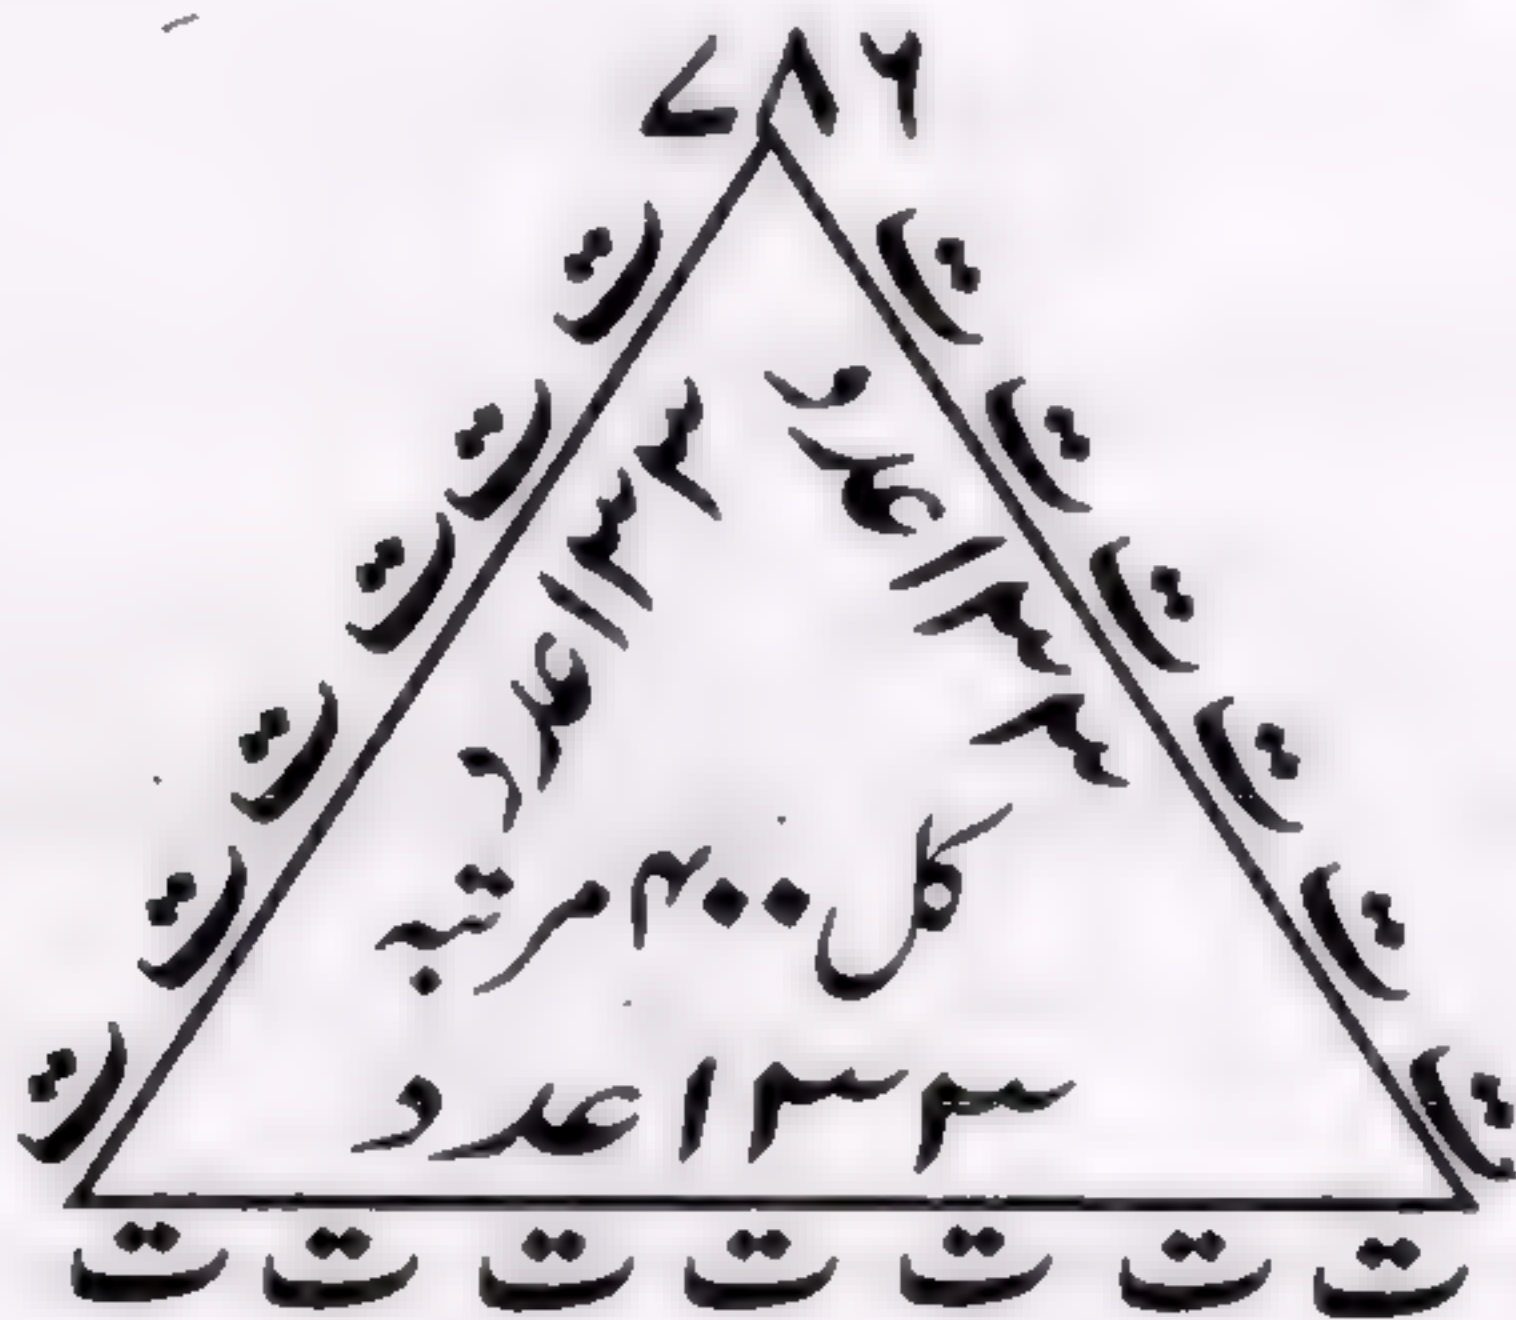 ۷۸۶
ت ت ت ت ت ت
ت ت ت ت ت ت
۱۳۳ عدد
۱۳۳ عدد
کل ۴۰۰ مرتبہ
۱۳۳ عدد
ت ت ت ت ت ت ت